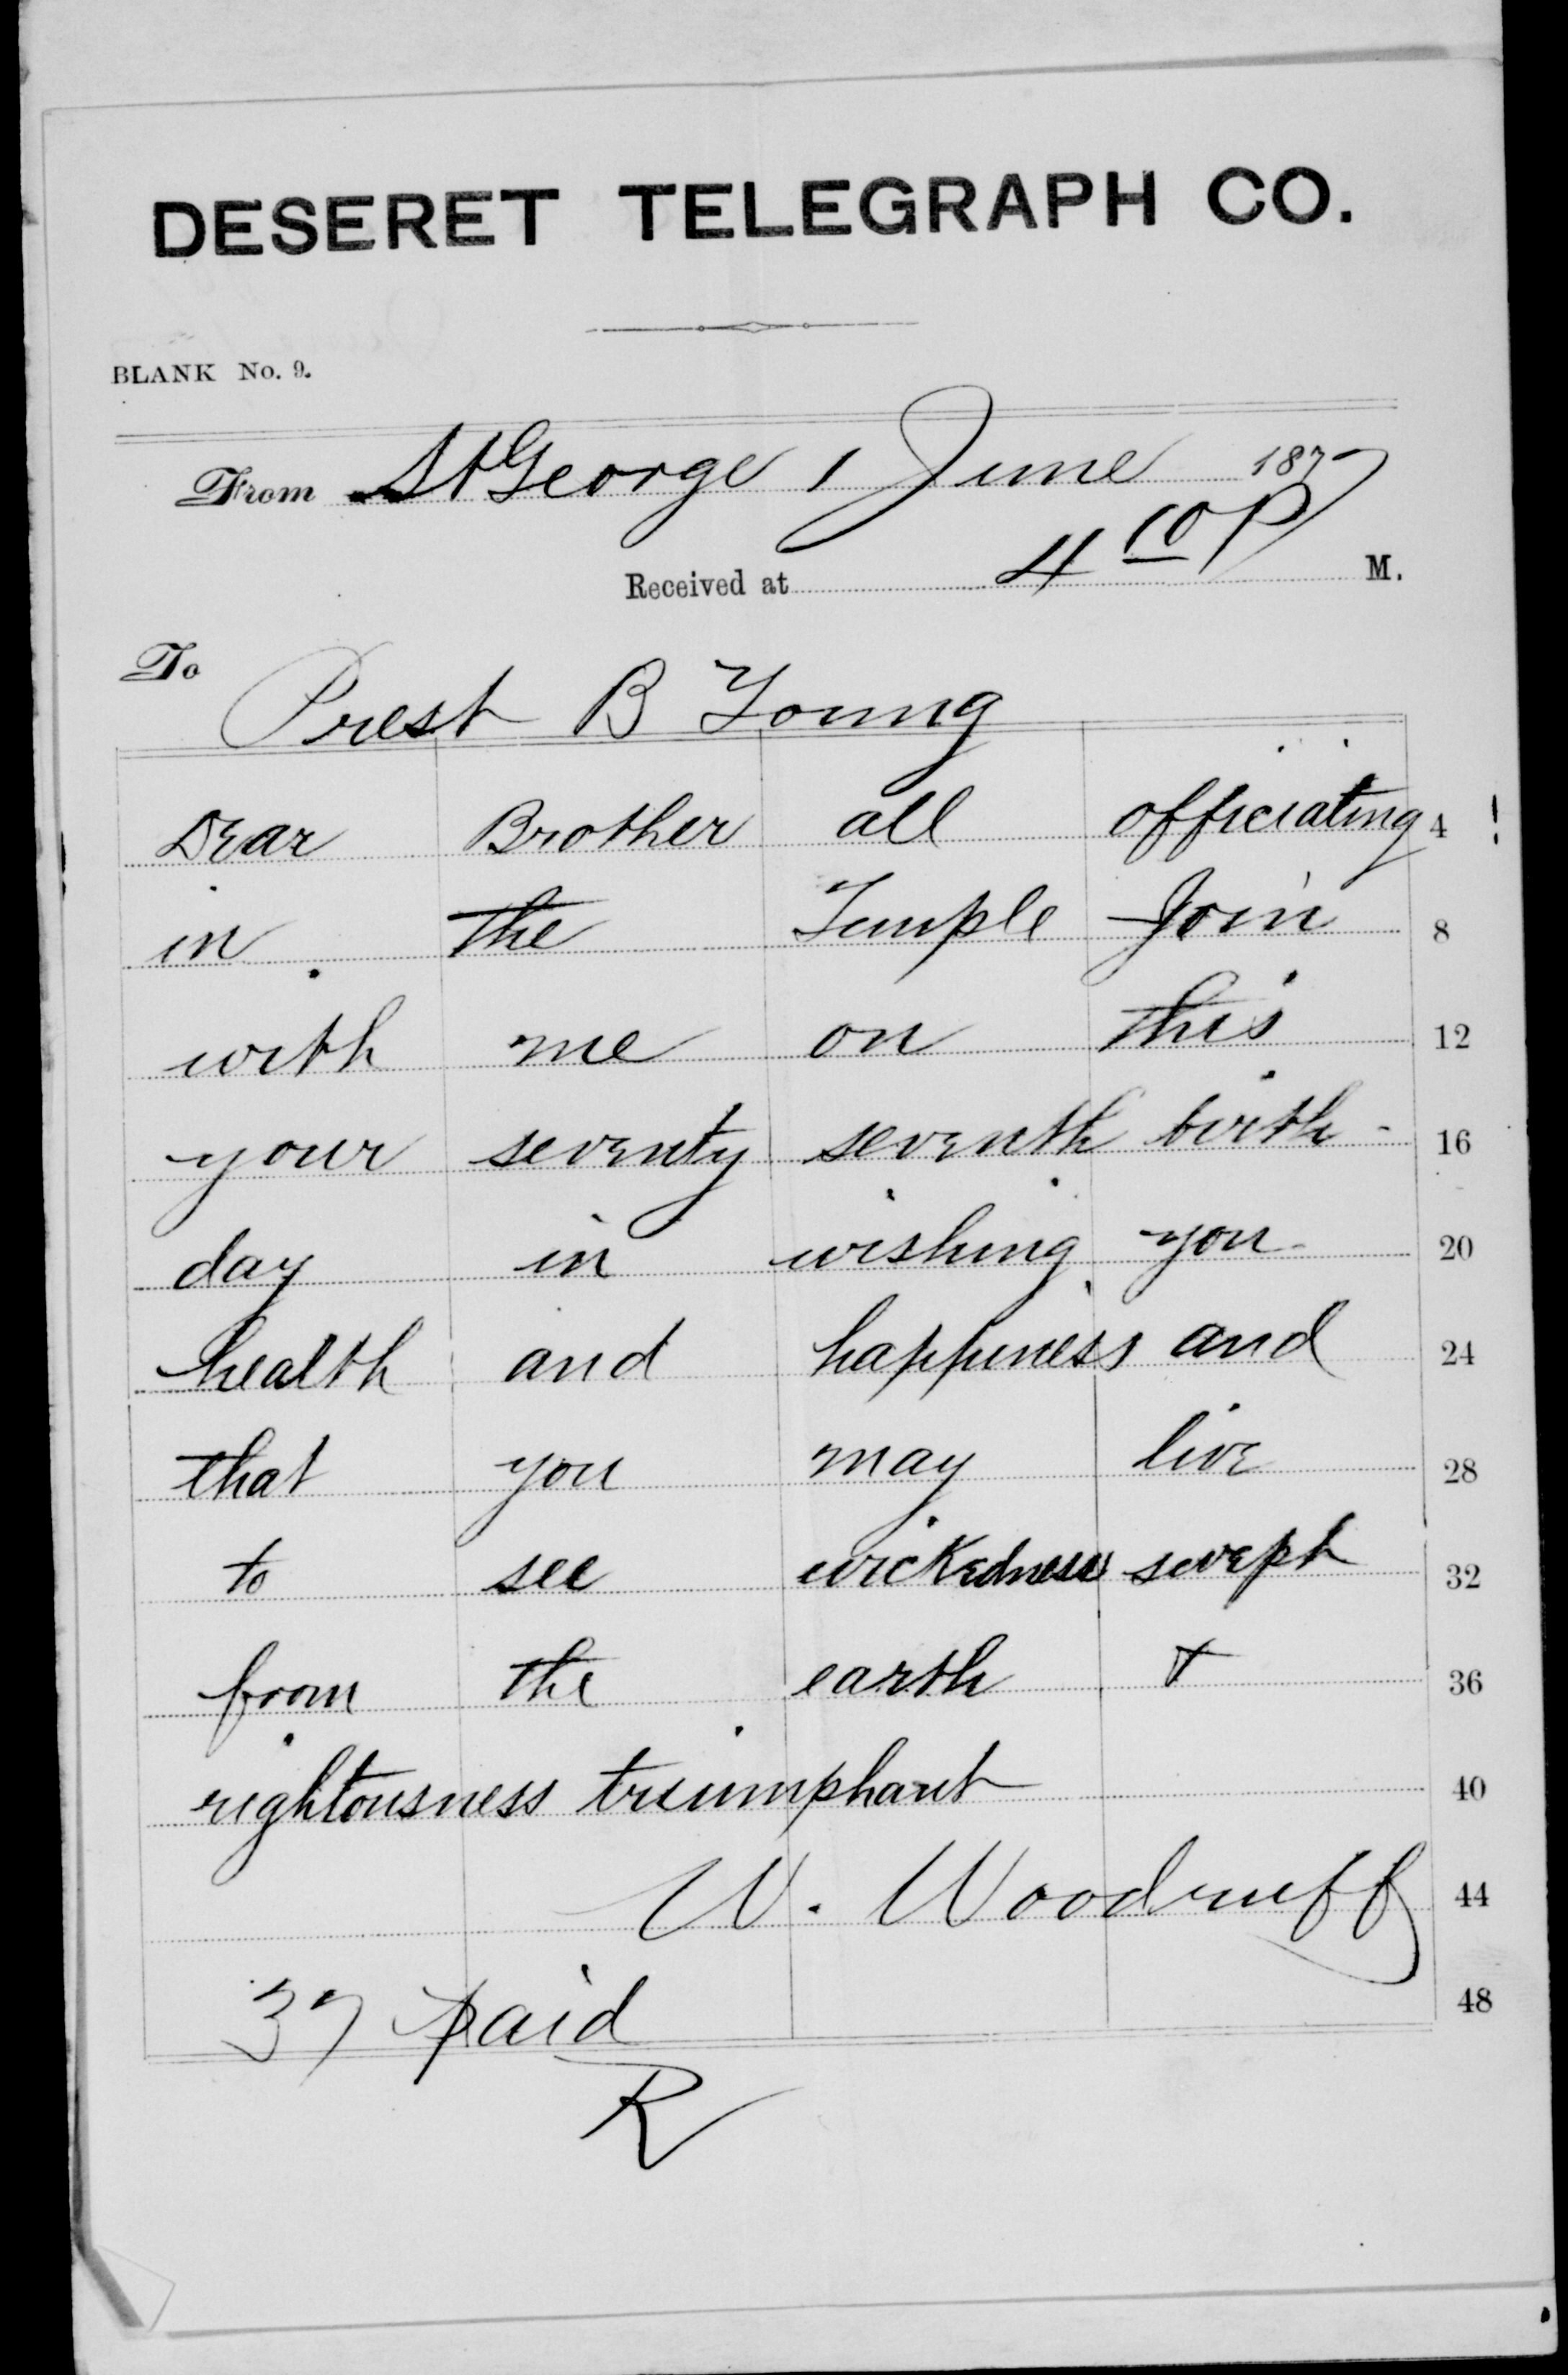 DESERET TELEGRAPH CO.
BLANK No. 9.
From St George 1 June 1877
Received at 4 10 P M.
To
Prest B Young
Dear Brother all officiating 4
in the Temple Join 8
with me on this 12
your seventy seventh birth- 16
day in wishing you 20
health and happiness and 24
that you may live 28
to see wickedness sweph 32
from the earth & 36
rightousness triumphant 40
W. Woodruff 44
48
37 paid
R